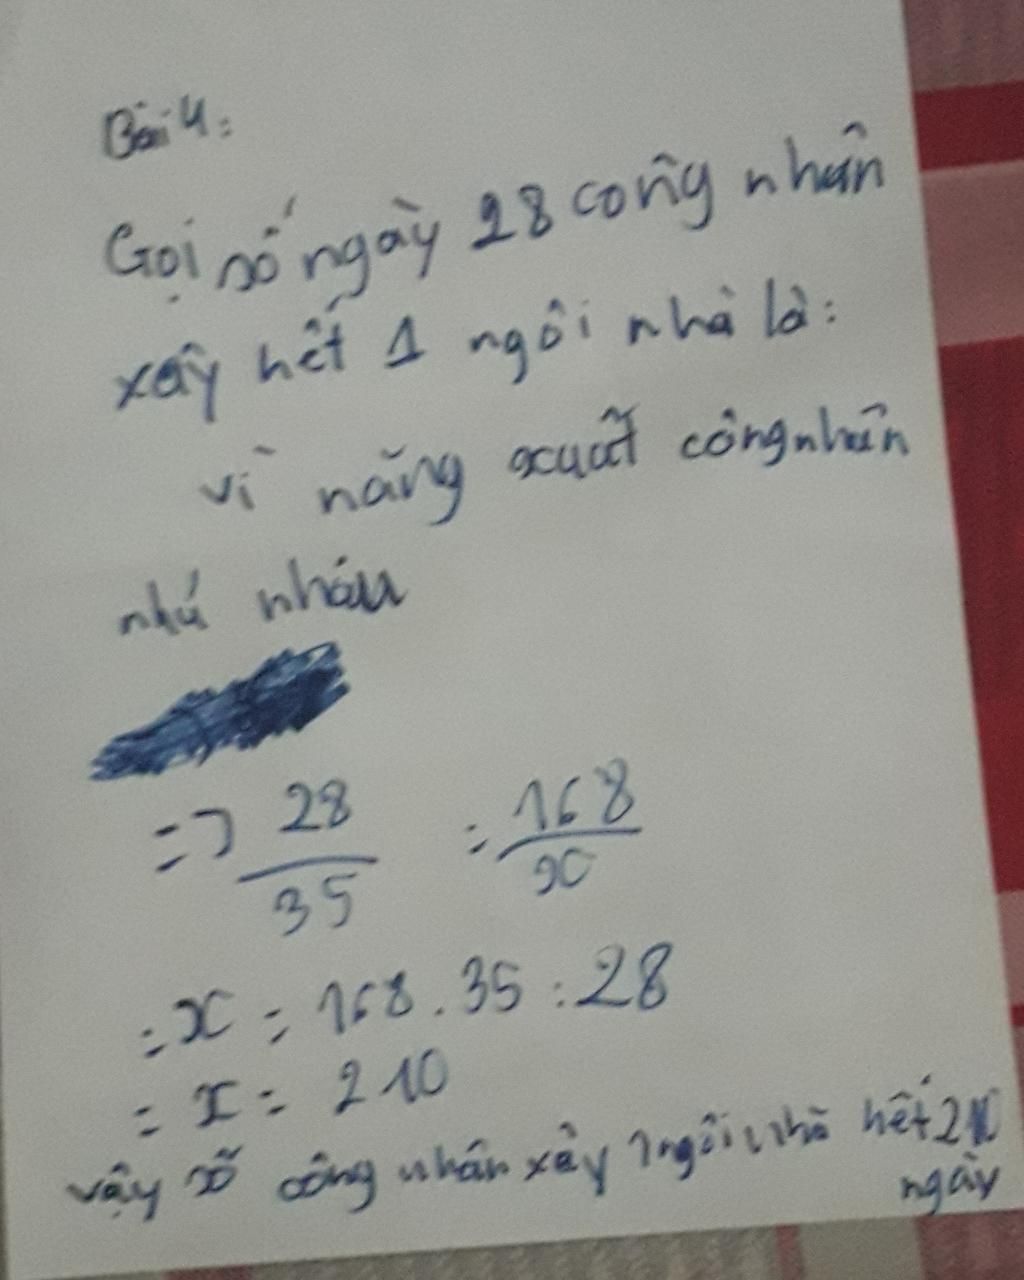 Bài 4:
Gọi số ngày 28 công nhân
xây hết 1 ngôi nhà là:
vì năng xuất công nhân
như nhau
=> 28/35 = 168/x
= x = 168 . 35 : 28
= x = 210
vậy số công nhân xây 1 ngôi nhà hết 210
ngày